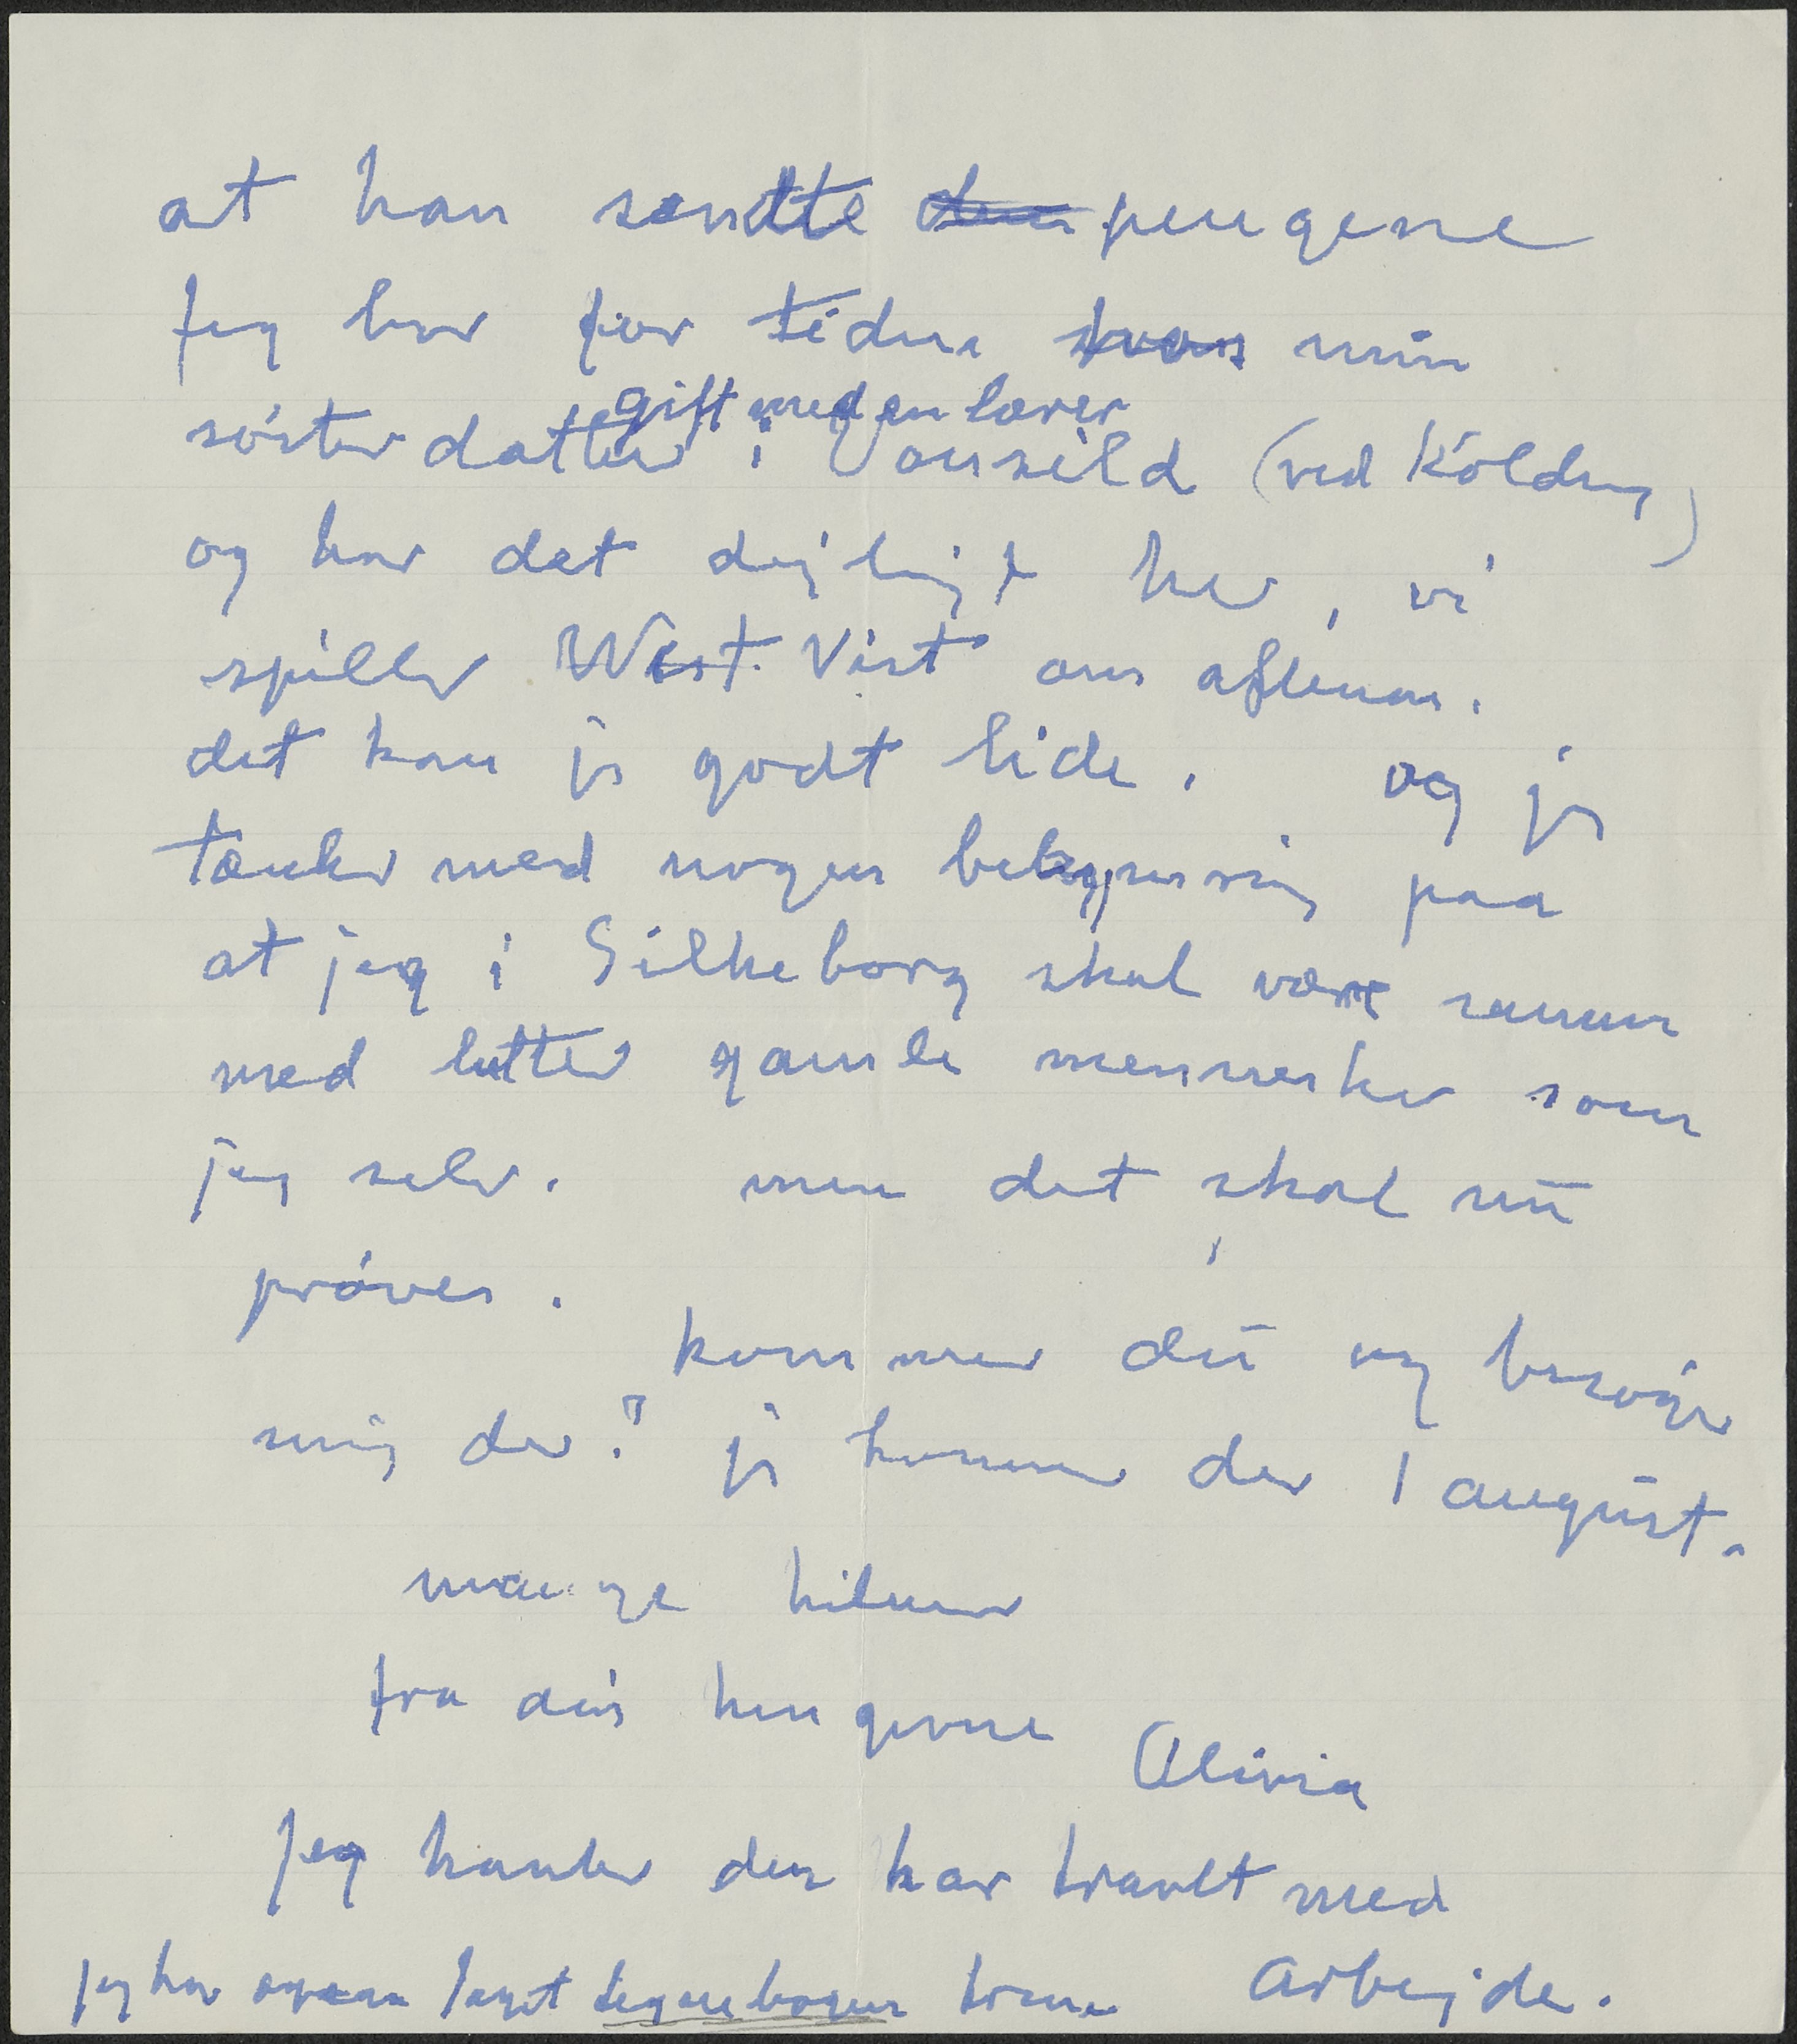 at han sendte den pengene
Jeg bor for tiden hos min
gift med en lærer
söster datter i Vonsild (ved Kolding)
og har det dejligt her, vi
spiller West. Vist om aftenen.
det kan jeg godt lide. og jeg
tænker med nogen bekymring paa
at jeg i Silkeborg skal være sammen
med lutter gamle mennesker som
jeg selv. men det skal nu
pröves.
kommer du og besöger
mig der? jeg kommer der 1 august.
mange hilsner
fra din hengivne
Olivia
Jeg tænker du har travlt med
Arbejde.
jeg har ogsaa taget tegnebogen